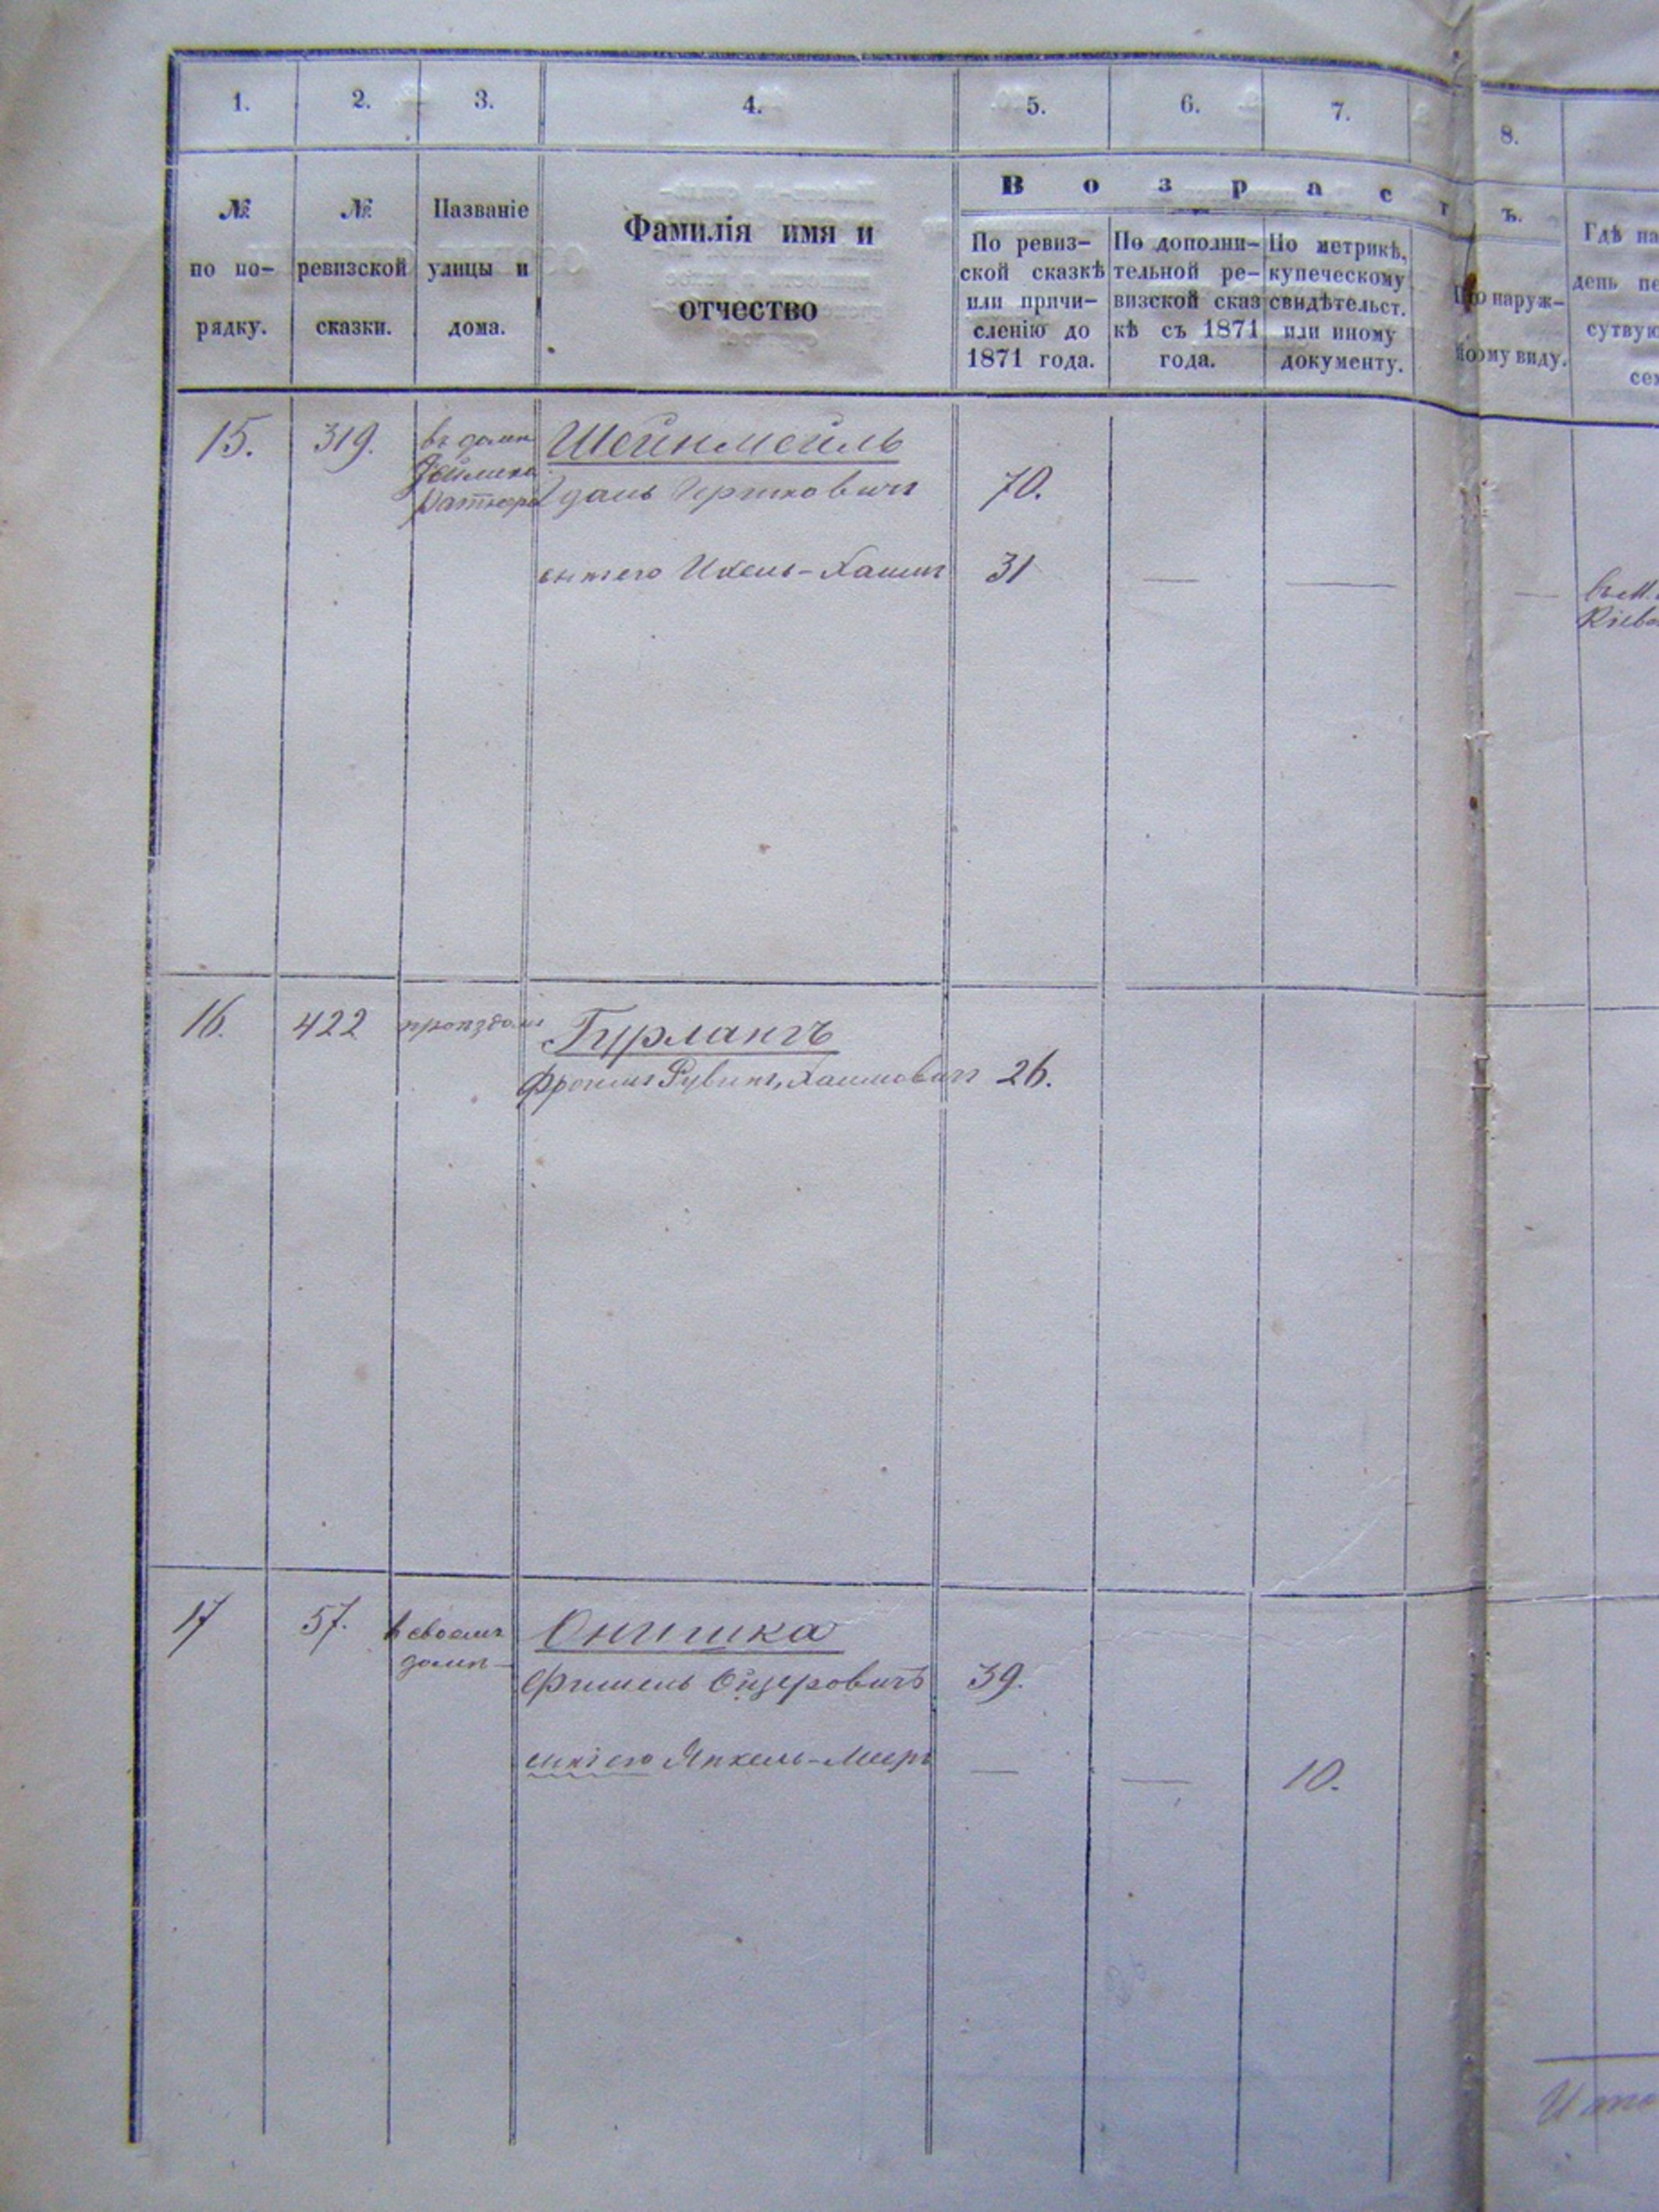 1. 2. 3. 4. 5. 6. 7. 8.
№ по по-рядку.
№ ревизской сказки.
Названіе улицы и дома.
Фамилія имя и отчество
В о з р а с т ъ.
По ревиз-
ской сказкѣ
или причи-
сленію до
1871 года.
По дополни-
тельной ре-
визской сказ
кѣ съ 1871
года.
По метрикѣ,
купеческому
свидѣтельст.
или иному
документу.
По наруж-
ному виду.
Гдѣ на
день пе
сутвую
сем
15. 319. въ домѣ Шейнмейль
Ратнера Идаль Гершковичъ 70.
сынъ его Ицель-Хаимъ 31 — — —
Кіева
16. 422 Гурланъ
Фроимъ Рувинъ, Хаимовичъ 26.
17 57. в своемъ Онишка
домѣ- Фишель Ойзеровичъ 39.
сынъ его Янкель-Мееръ — — 10.
Итого